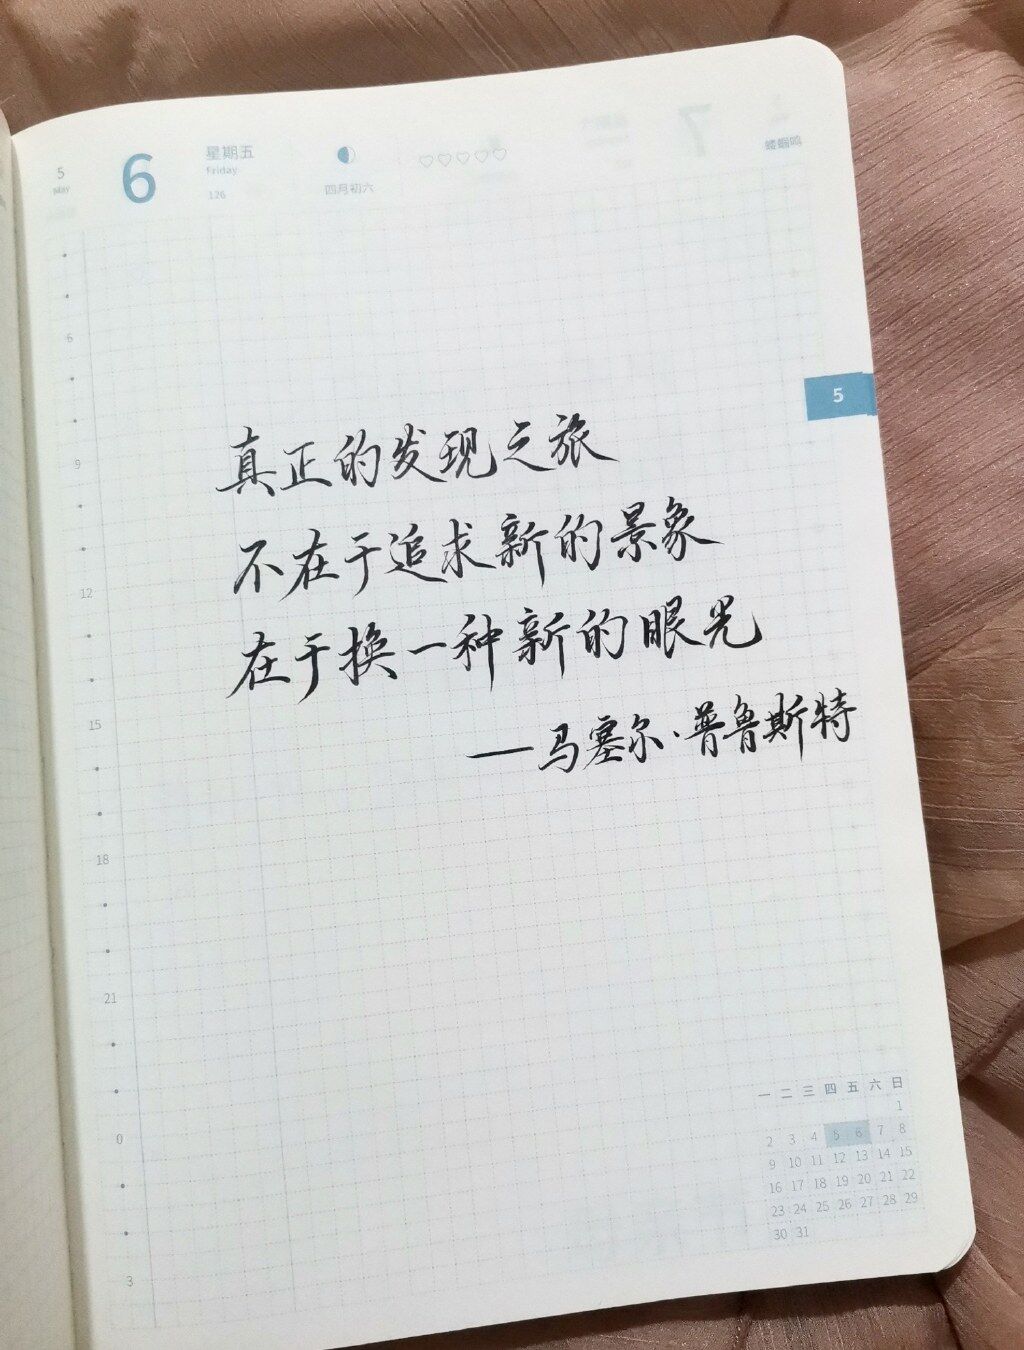 5
May
6
星期五
Friday
126
四月初六
蝼蝈鸣
6
9
12
15
18
21
0
3
5
真正的发现之旅
不在于追求新的景象
在于换一种新的眼光
——马塞尔·普鲁斯特
一 二 三 四 五 六 日
1
2 3 4 5 6 7 8
9 10 11 12 13 14 15
16 17 18 19 20 21 22
23 24 25 26 27 28 29
30 31